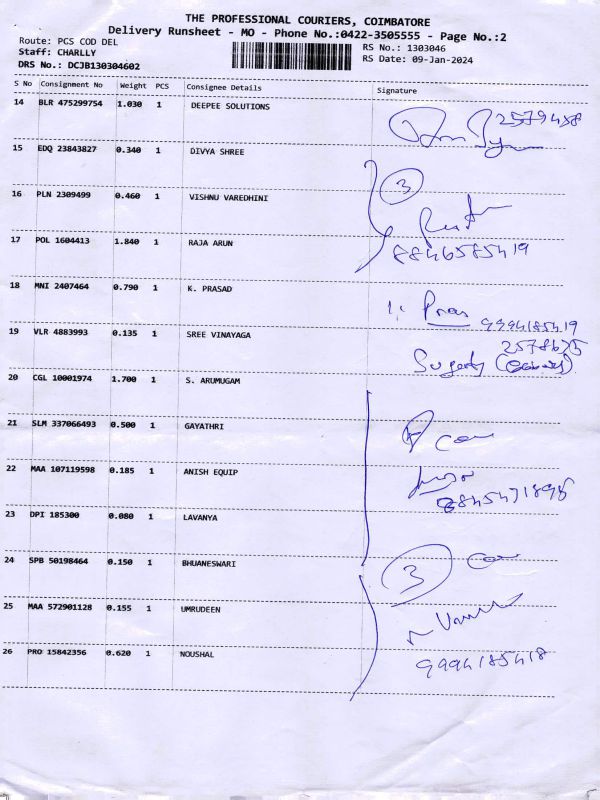 THE PROFESSIONAL COURIERS, COIMBATORE
Delivery Runsheet - MO - Phone No.:0422-3505555 - Page No.:2
Route: PCS COD DEL
RS No.: 1303046
Staff: CHARLLY
RS Date: 09-Jan-2024
DRS No.: DCJB130304602
S No Consignment No Weight PCS Consignee Details Signature
14 BLR 475299754 1.030 1 DEEPEE SOLUTIONS
2579458
15 EDQ 23843827 0.340 1 DIVYA SHREE
3
16 PLN 2309499 0.460 1 VISHNU VAREDHINI
17 POL 1604413 1.840 1 RAJA ARUN
8846585419
18 MNI 2407464 0.790 1 K. PRASAD
9994185419
19 VLR 4883993 0.135 1 SREE VINAYAGA
20 CGL 10001974 1.700 1 S. ARUMUGAM
21 SLM 337066493 0.500 1 GAYATHRI
22 MAA 107119598 0.185 1 ANISH EQUIP
23 DPI 185300 0.080 1 LAVANYA
24 SPB 50198464 0.150 1 BHUANESWARI
3
25 MAA 572901128 0.155 1 UMRUDEEN
26 PRO 15842356 0.620 1 NOUSHAL
9994185418